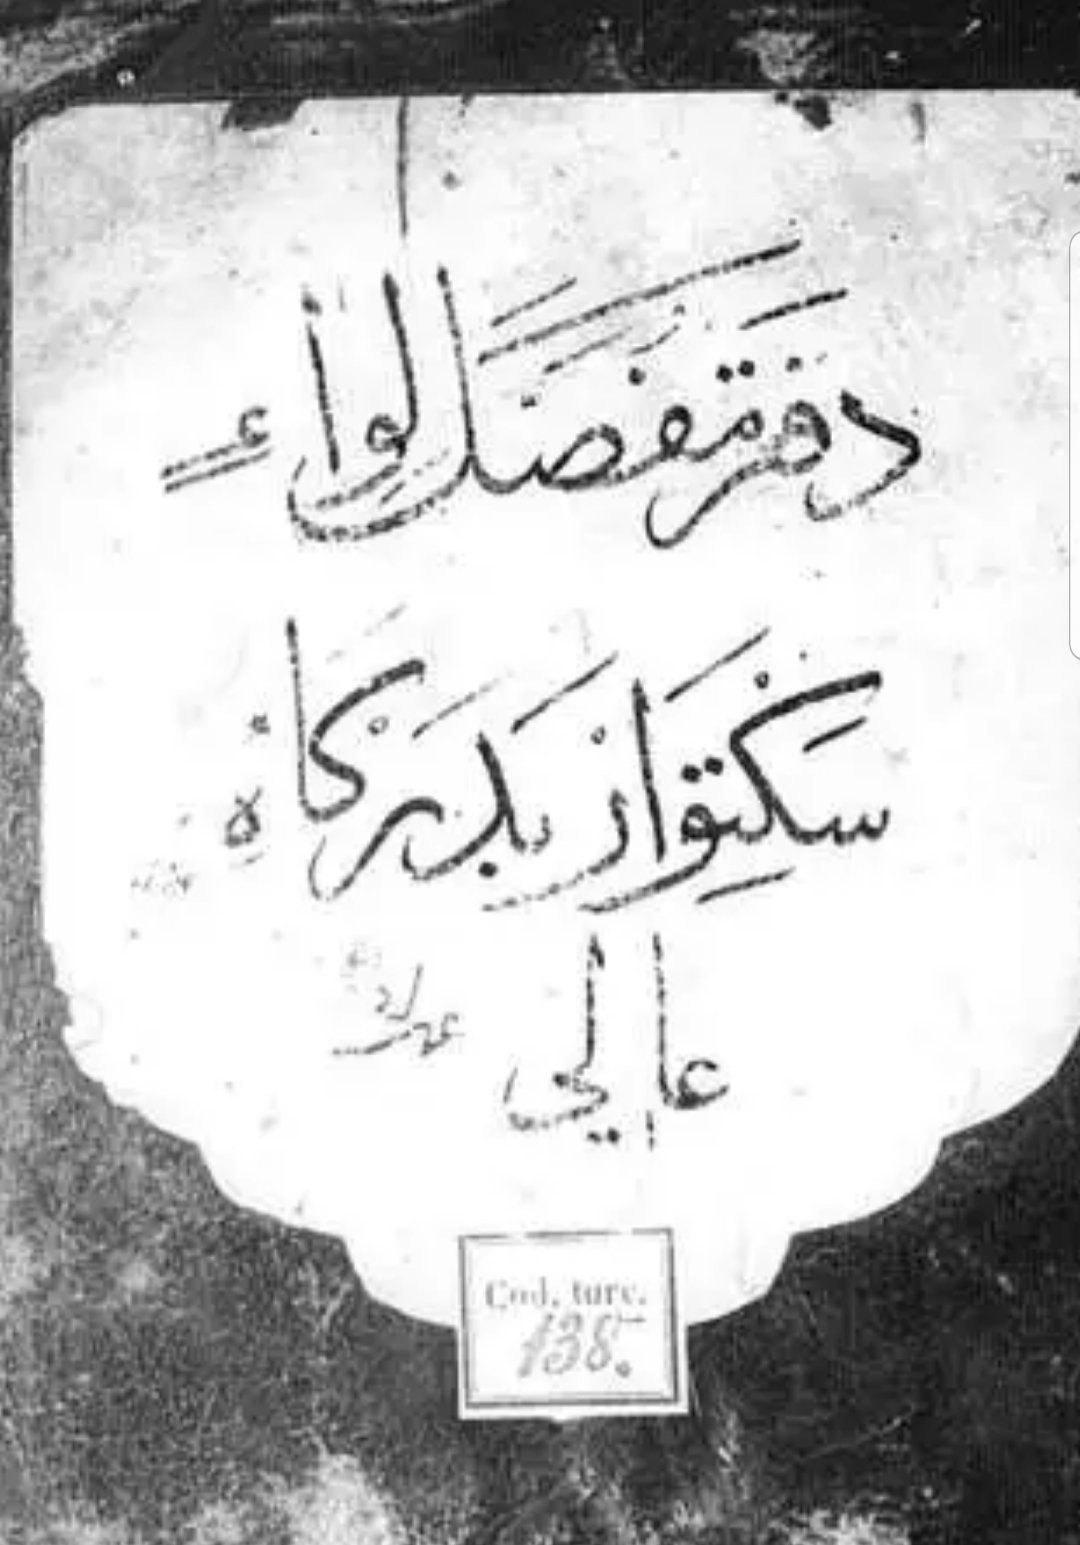 دفتر مفصل لواء
سكتوار بدركاه
عالي
Cod. turc.
138.